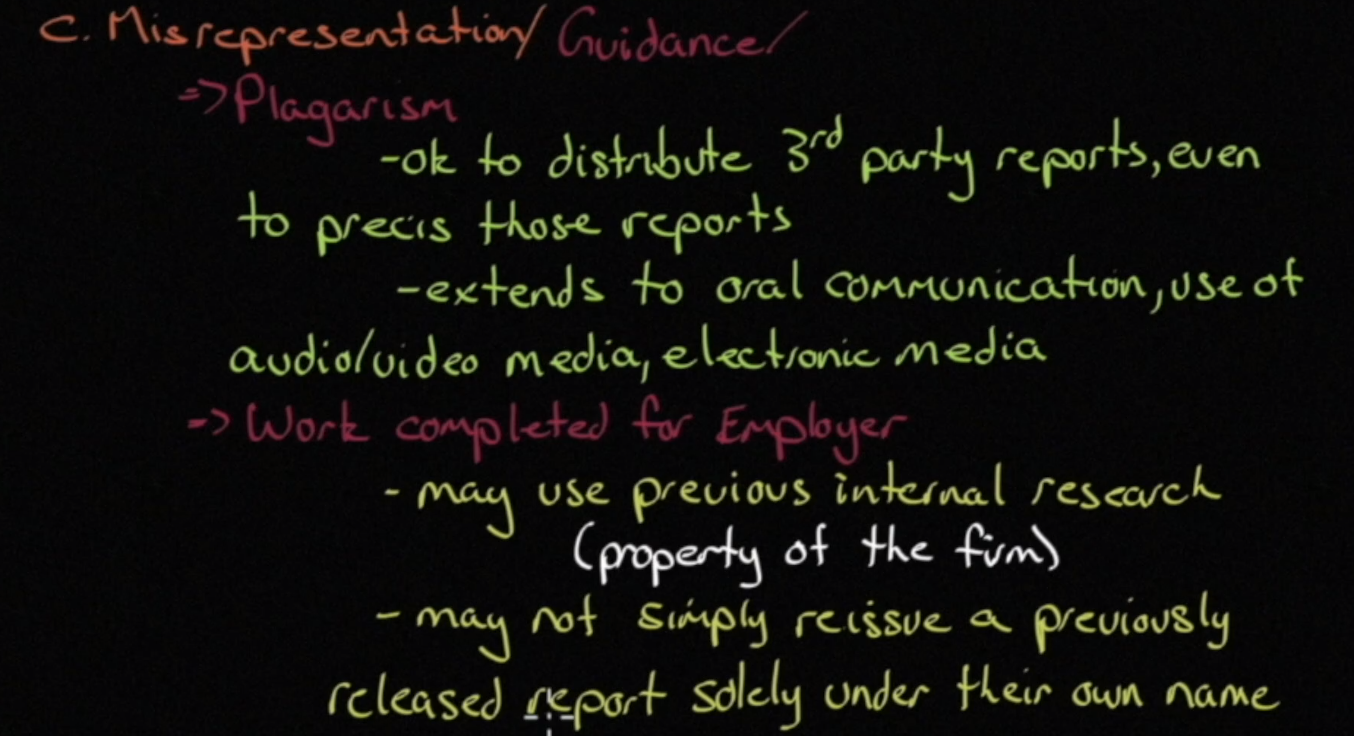 C. Misrepresentation/ Guidance/
=> Plagarism
-ok to distribute 3rd party reports, even
to precis those reports
-extends to oral communication, use of
audio/video media, electronic media
-> Work completed for Employer
- may use previous internal research
(property of the firm)
- may not simply reissue a previously
released report solely under their own name